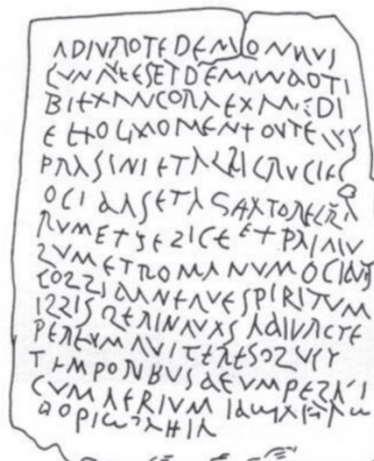 ADIVROTEDEMONQVI
CVNQVEESETDEMANDOTI
BIEXANCORAEXANCDI
EEXOCMOMENTOVTEQVOS
PRASINIETALBICRVCIES
OCIDASETAGITATORECLA
RVMETFELICEETPRIMV
LVMETROMANVMOCIDAS
COLLIDANEQVESPIRITVM
ILLISLERINQVASADIVROTE
PEREVMQVITERESOLVIT
TEMPORIBVSDEVMPELAGI
CVMAERIVM